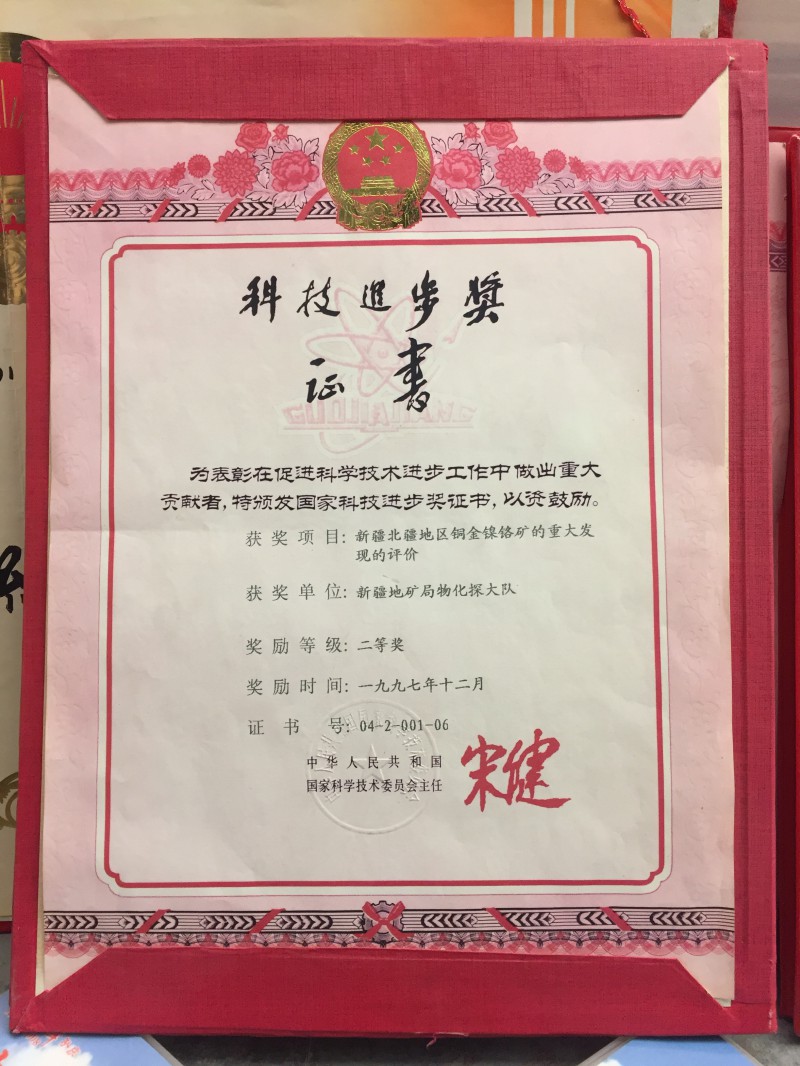 科技进步奖
证书
为表彰在促进科学技术进步工作中做出重大
贡献者，特颁发国家科技进步奖证书，以资鼓励。
获奖项目：新疆北疆地区铜金镍铬矿的重大发
现的评价
获奖单位：新疆地矿局物化探大队
奖励等级：二等奖
奖励时间：一九九七年十二月
证书号：04-2-001-06
中华人民共和国
国家科学技术委员会主任
宋健